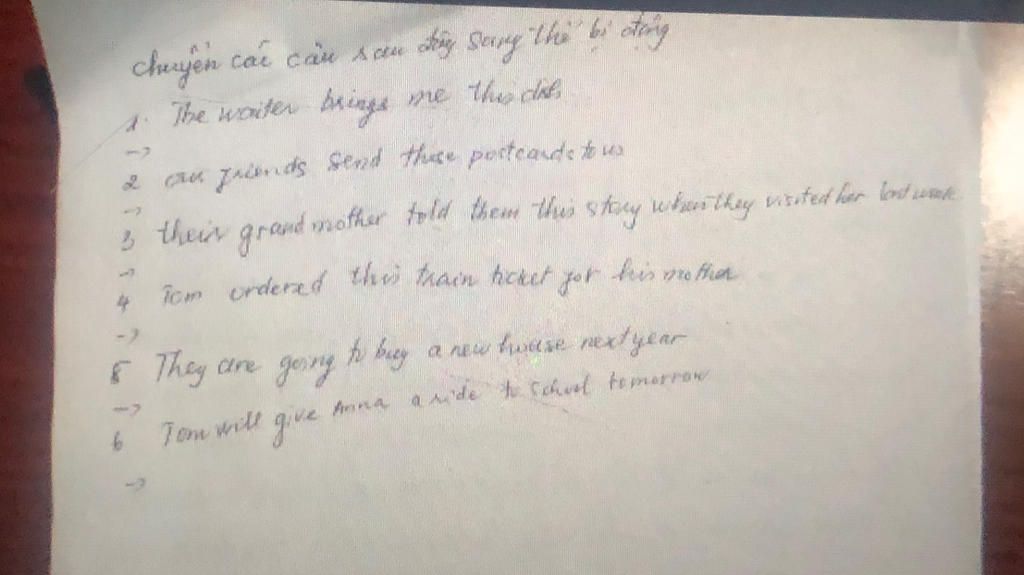 chuyển các câu sau đây sang thể bị động
1. The waiter brings me this dish
->
2 our friends send these postcards to us
->
3 their grandmother told them this story when they visited her last week
->
4 Tom ordered this train ticket for his mother
->
5 They are going to buy a new house next year
->
6 Tom will give Anna a ride to school tomorrow
->